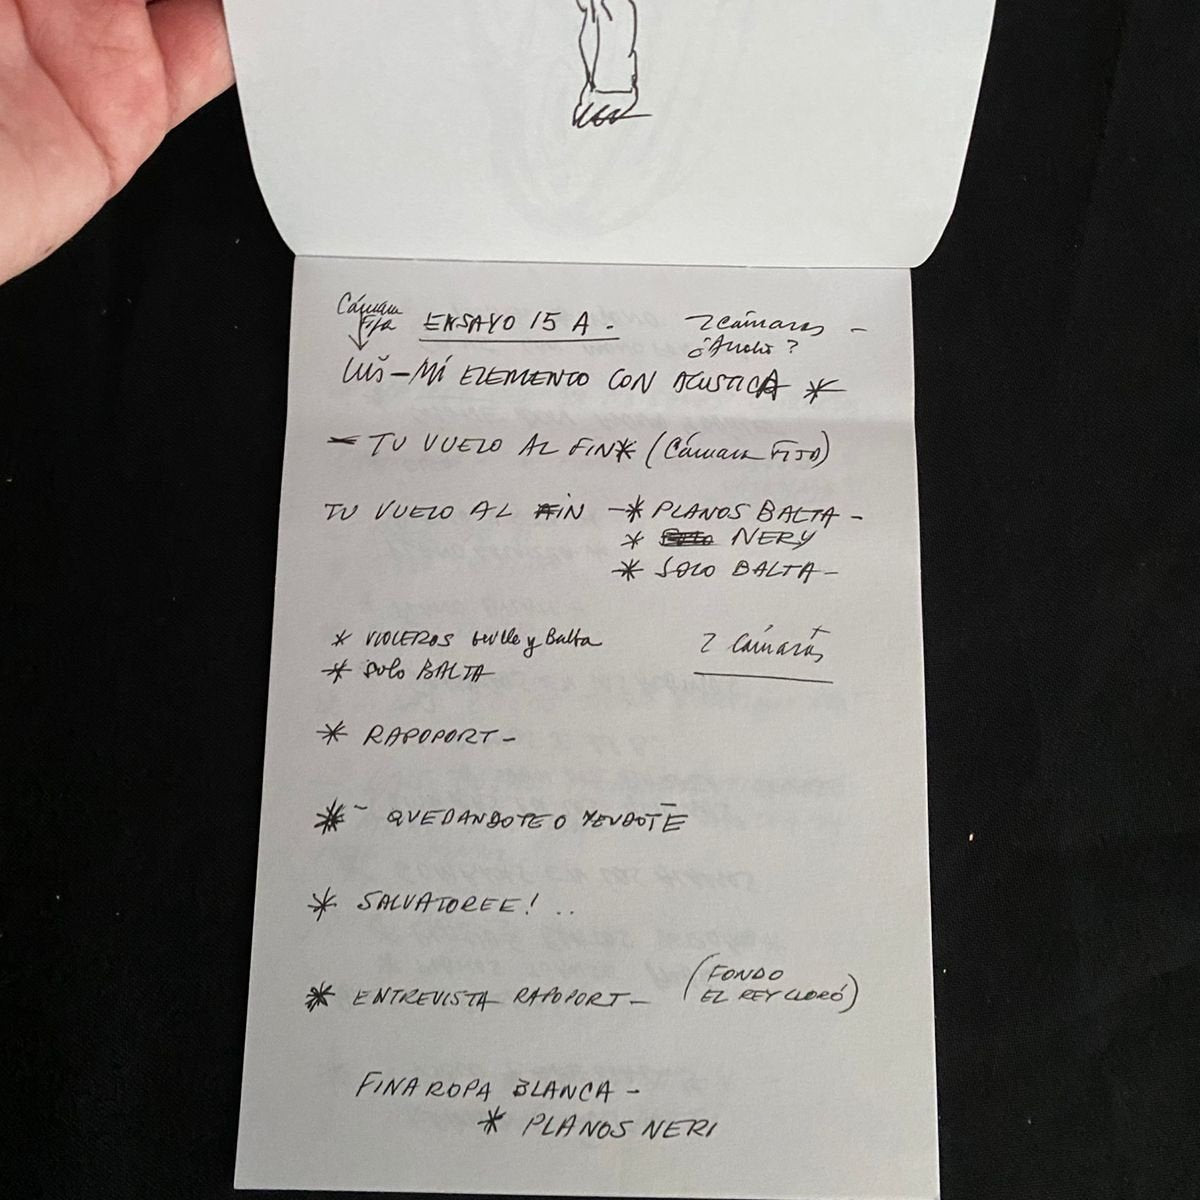 Cámara
Fija
ENSAYO 15 A. 2 Cámaras -
¿Audio?
LUIS - MI ELEMENTO CON ACUSTICA *
- TU VUELO AL FIN * (Cámara FIJA)
TU VUELO AL FIN - * PLANOS BALTA -
* NERY
* SOLO BALTA -
* VIOLEROS y Balta 2 Cámaras
* SOLO BALTA
* RAPOPORT -
* - QUEDANDOTE O YENDOTE
* SALVATOREE! ..
* ENTREVISTA RAPOPORT - (FONDO
EL REY LLORÓ)
FINA ROPA BLANCA -
* PLANOS NERI